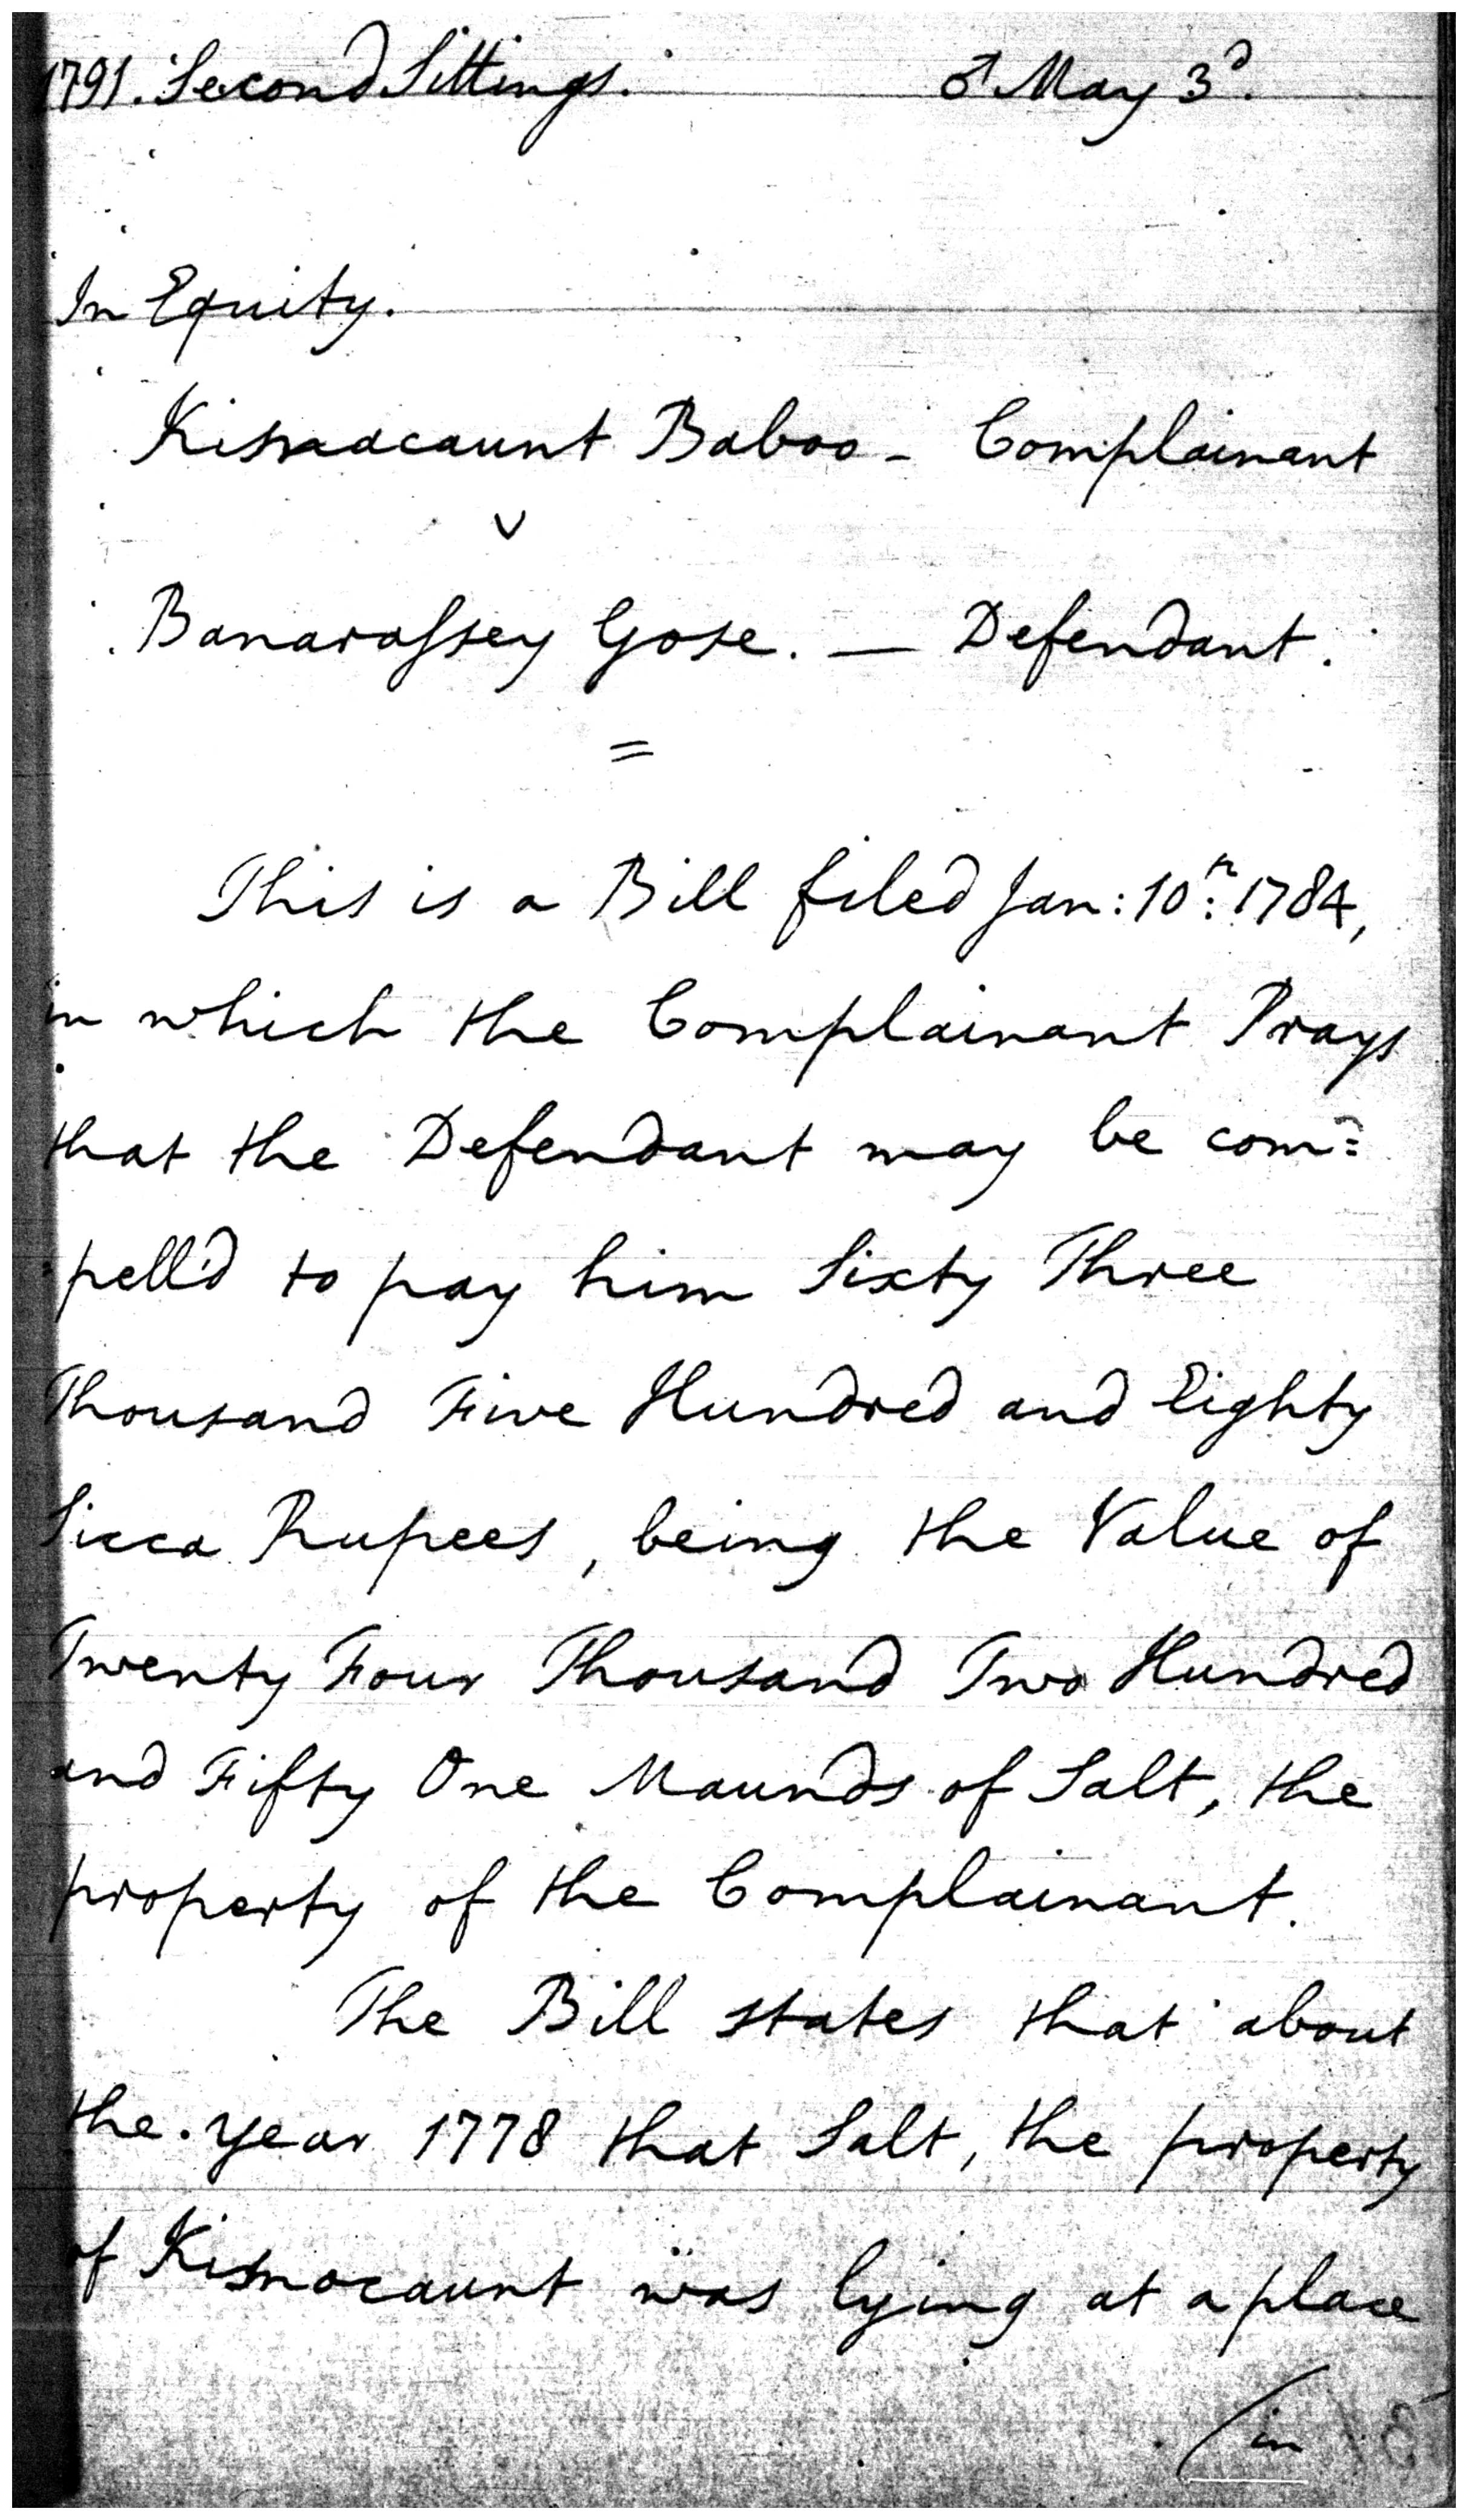 1791. Second Sittings. ♂ May 3d.
In Equity.
Kisnacaunt Baboo - Complainant
v
Banarassey Gose. — Defendant.
=
This is a Bill filed Jan: 10th: 1784,
in which the Complainant Prays
that the Defendant may be com=
pell'd to pay him Sixty Three
Thousand Five Hundred and Eighty
Sicca Rupees, being the Value of
Twenty Four Thousand Two Hundred
and Fifty One Maunds of Salt, the
property of the Complainant.
The Bill states that about
the year 1778 that Salt, the property
of Kisnocaunt was lying at a place
/in